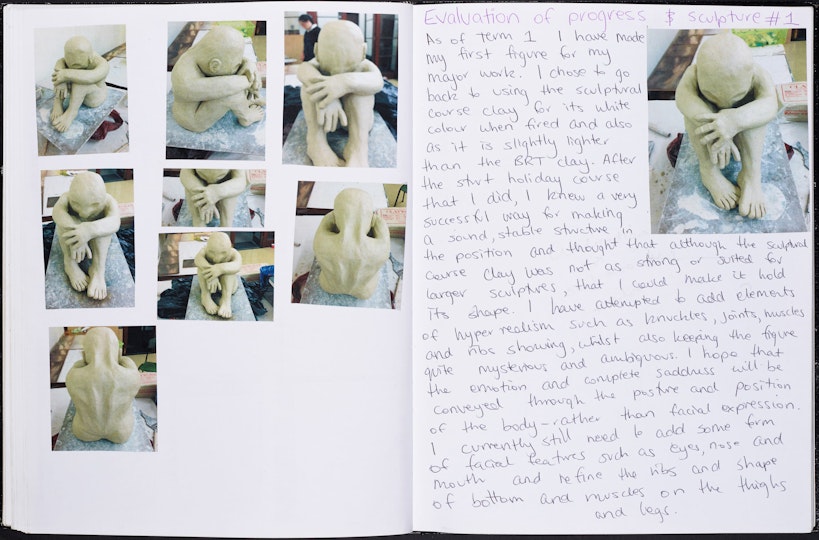 Evaluation of progress & sculpture #1
As of Term 1 I have made
my first figure for my
major work. I chose to go
back to using the sculptural
course clay for its white
colour when fired and also
as it is slightly lighter
than the BRT clay. After
the stwt holiday course
that I did, I knew a very
successful way for making
a sound, stable structure in
the position and thought that although the sculptural
course clay was not as strong or suited for
larger sculptures, that I could make it hold
its shape. I have attempted to add elements
of hyper realism such as knuckles, joints, muscles
and ribs showing, whilst also keeping the figure
quite mysterious and ambiguous. I hope that
the emotion and complete saddness will be
conveyed through the posture and position
of the body - rather than facial expression.
I currently still need to add some form
of facial features such as eyes, nose and
mouth and refine the ribs and shape
of bottom and muscles on the thighs
and legs.